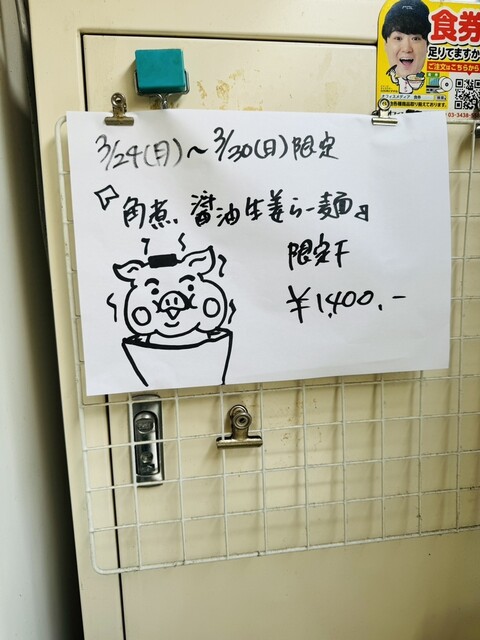 3/24(月)～3/30(日)限定
『角煮、醤油生姜らー麺』
限定F
¥1,400.-
食券
足りてますか
ご注文はこちらから
03-3438-